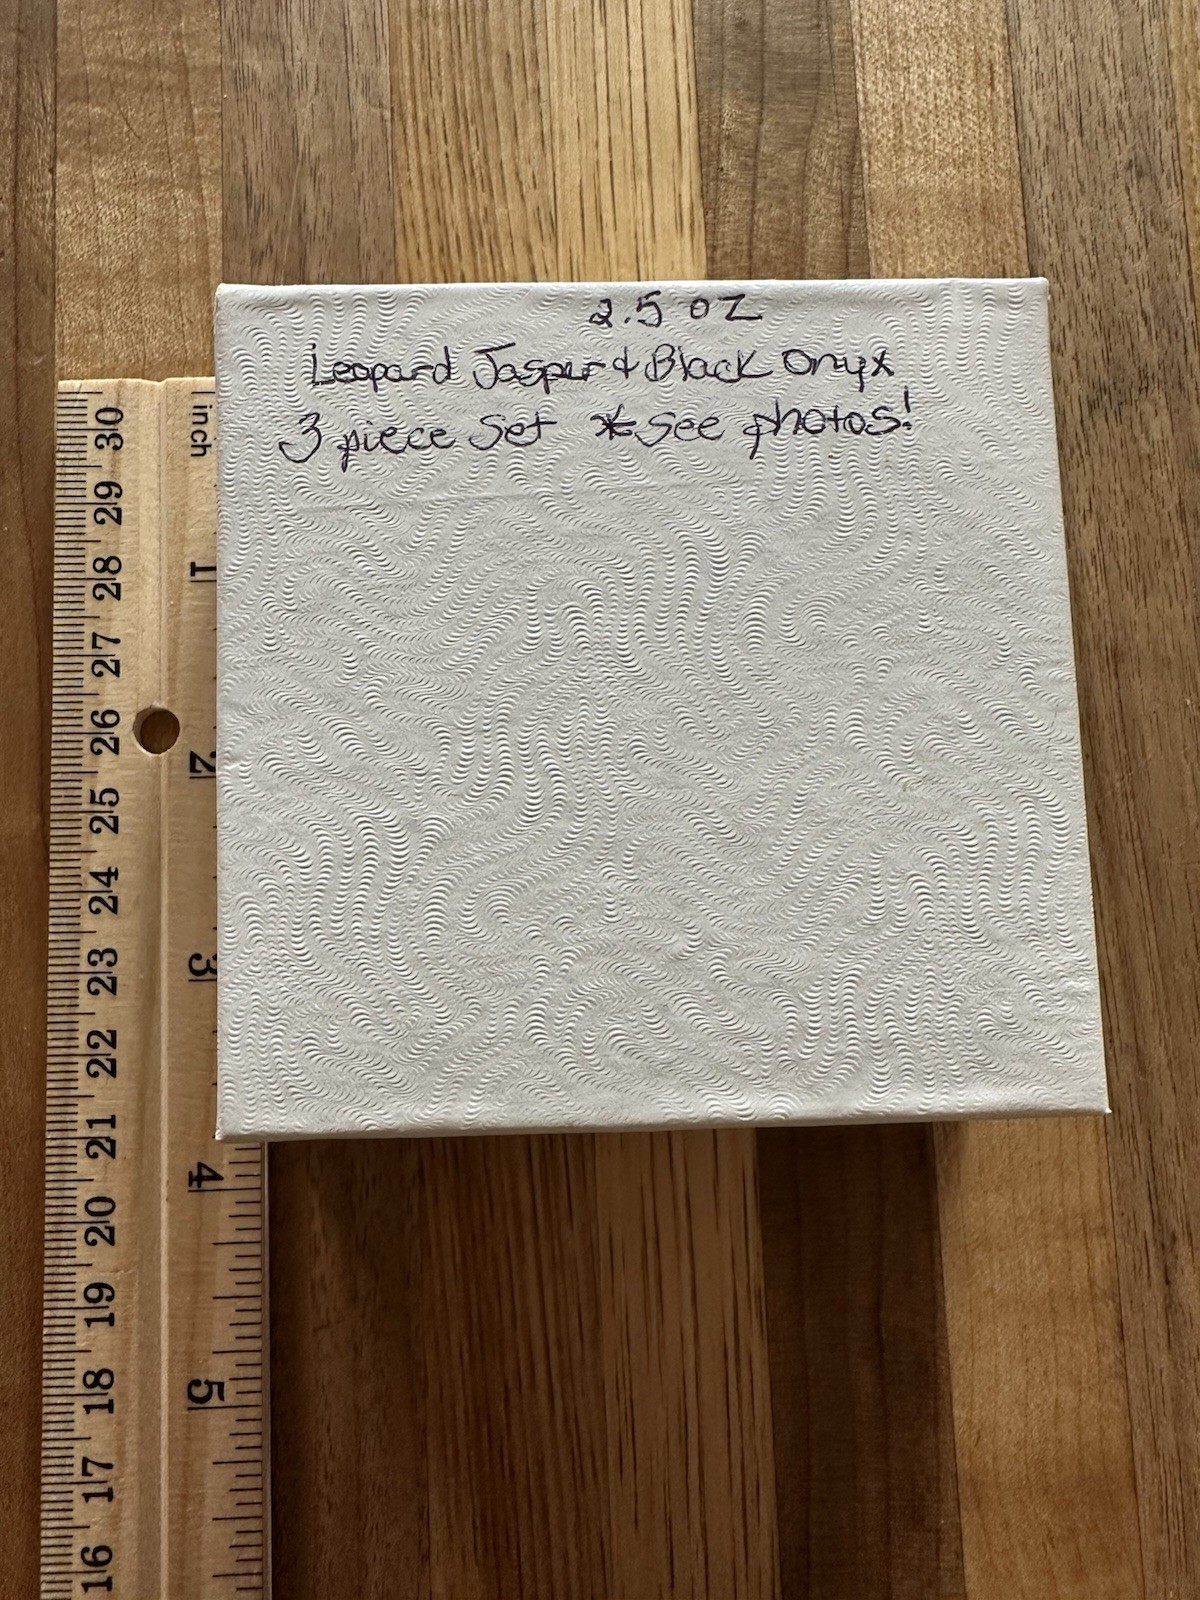 2.5 OZ
Leopard Jasper & Black Onyx
3 piece Set *See photos!
inch
1
2
3
4
5
30
29
28
27
26
25
24
23
22
21
20
19
18
17
16